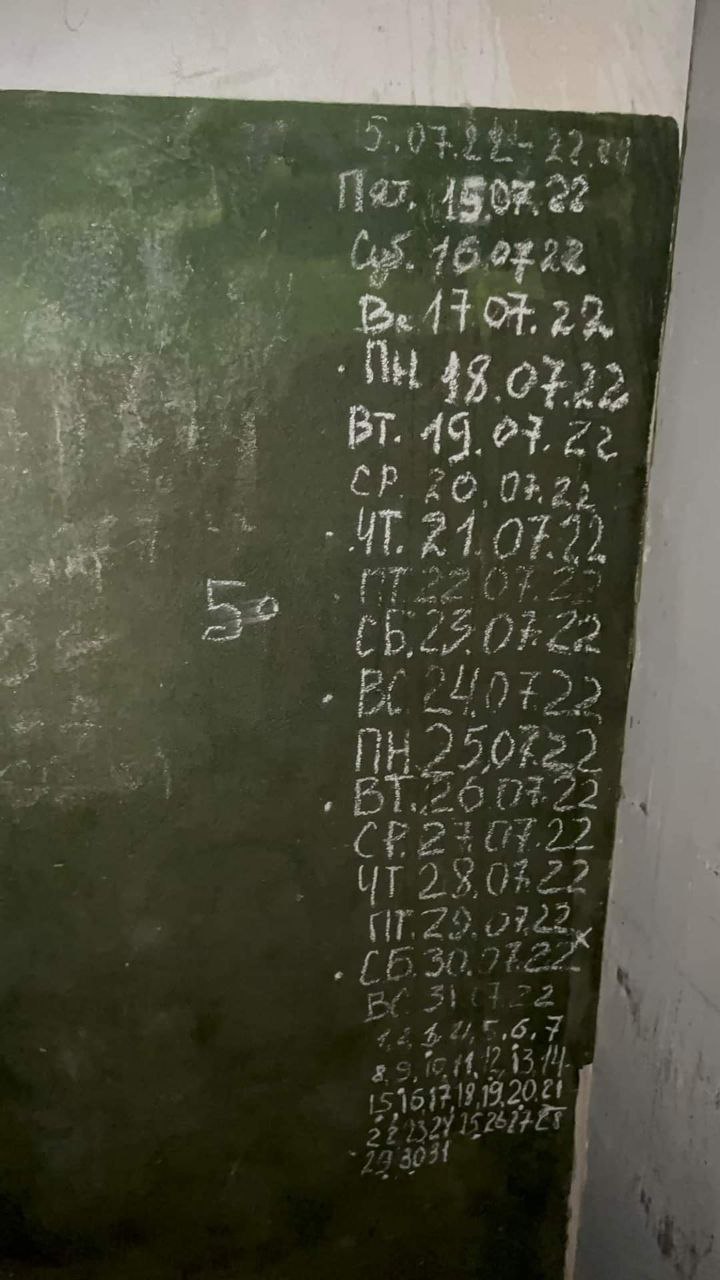 5.07.22-22.00
Пят. 15.07.22
Суб. 16.07 22
Вс 17.07.22
ПН 18.07.22
ВТ. 19.07.22
СР. 20.07.22
ЧТ. 21.07.22
ПТ. 22.07.22
5
СБ. 23.07.22
ВС 24.07.22
ПН. 25.07.22
ВТ. 26.07.22
СР. 27.07.22
ЧТ 28.07.22
ПТ. 29.07.22
СБ. 30.07.22 х
ВС 31.07.22
1, 2, 3, 4, 5, 6, 7
8, 9, 10, 11, 12, 13, 14
15, 16, 17, 18, 19, 20, 21
22 23 24 25 26 27 28
29 30 31